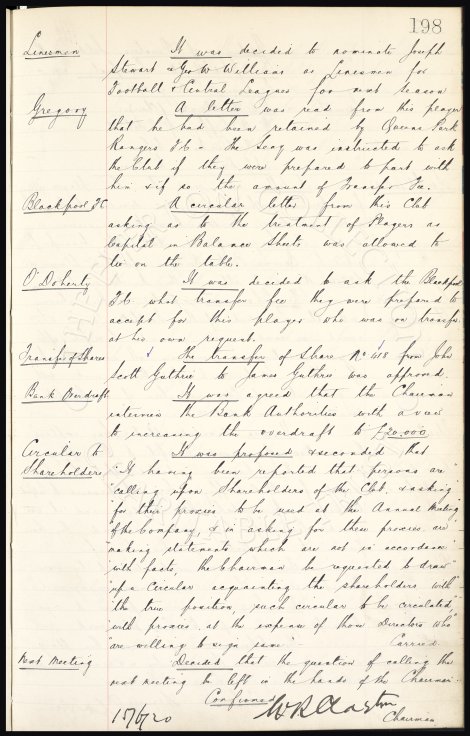 198
Linesmen It was decided to nominate Joseph
Stewart & Geo W Williams as Linesmen for
Football & Central Leagues for next season
Gregory A letter was read from this player
that he had been retained by Queens Park
Rangers F.C. - The Secy was instructed to ask
the Club if they were prepared to part with
him & if so the amount of Transfer Fee.
Blackpool F.C A circular letter from this Club
asking as to the treatment of Players as
Capital in Balance Sheets was allowed to
lie on the table.
O'Doherty It was decided to ask the Blackpool
F.C what transfer fee they were prepared to
accept for this player who was on transfer
at his own request.
Transfer of Shares The transfer of Share No 418 from John
Scott Guthrie to James Guthrie was approved
Bank Overdraft It was agreed that the Chairman
interview the Bank Authorities with a view
to increasing the overdraft to £20,000
Circular to It was proposed & seconded that
Shareholders "It having been reported that persons are"
"calling upon Shareholders of the Club, & asking"
"for their proxies to be used at the Annual Meeting"
"of the Company, & in asking for these proxies are"
"making statements which are not in accordance"
"with facts, the Chairman be requested to draw"
"up a Circular acquainting the shareholders with"
"the true position, such circular to be circulated"
"with proxies, at the expense of those Directors who"
"are willing to sign same" - Carried
Next Meeting Decided that the question of calling the
next meeting be left in the hands of the Chairman
Confirmed
15/6/20 Chairman